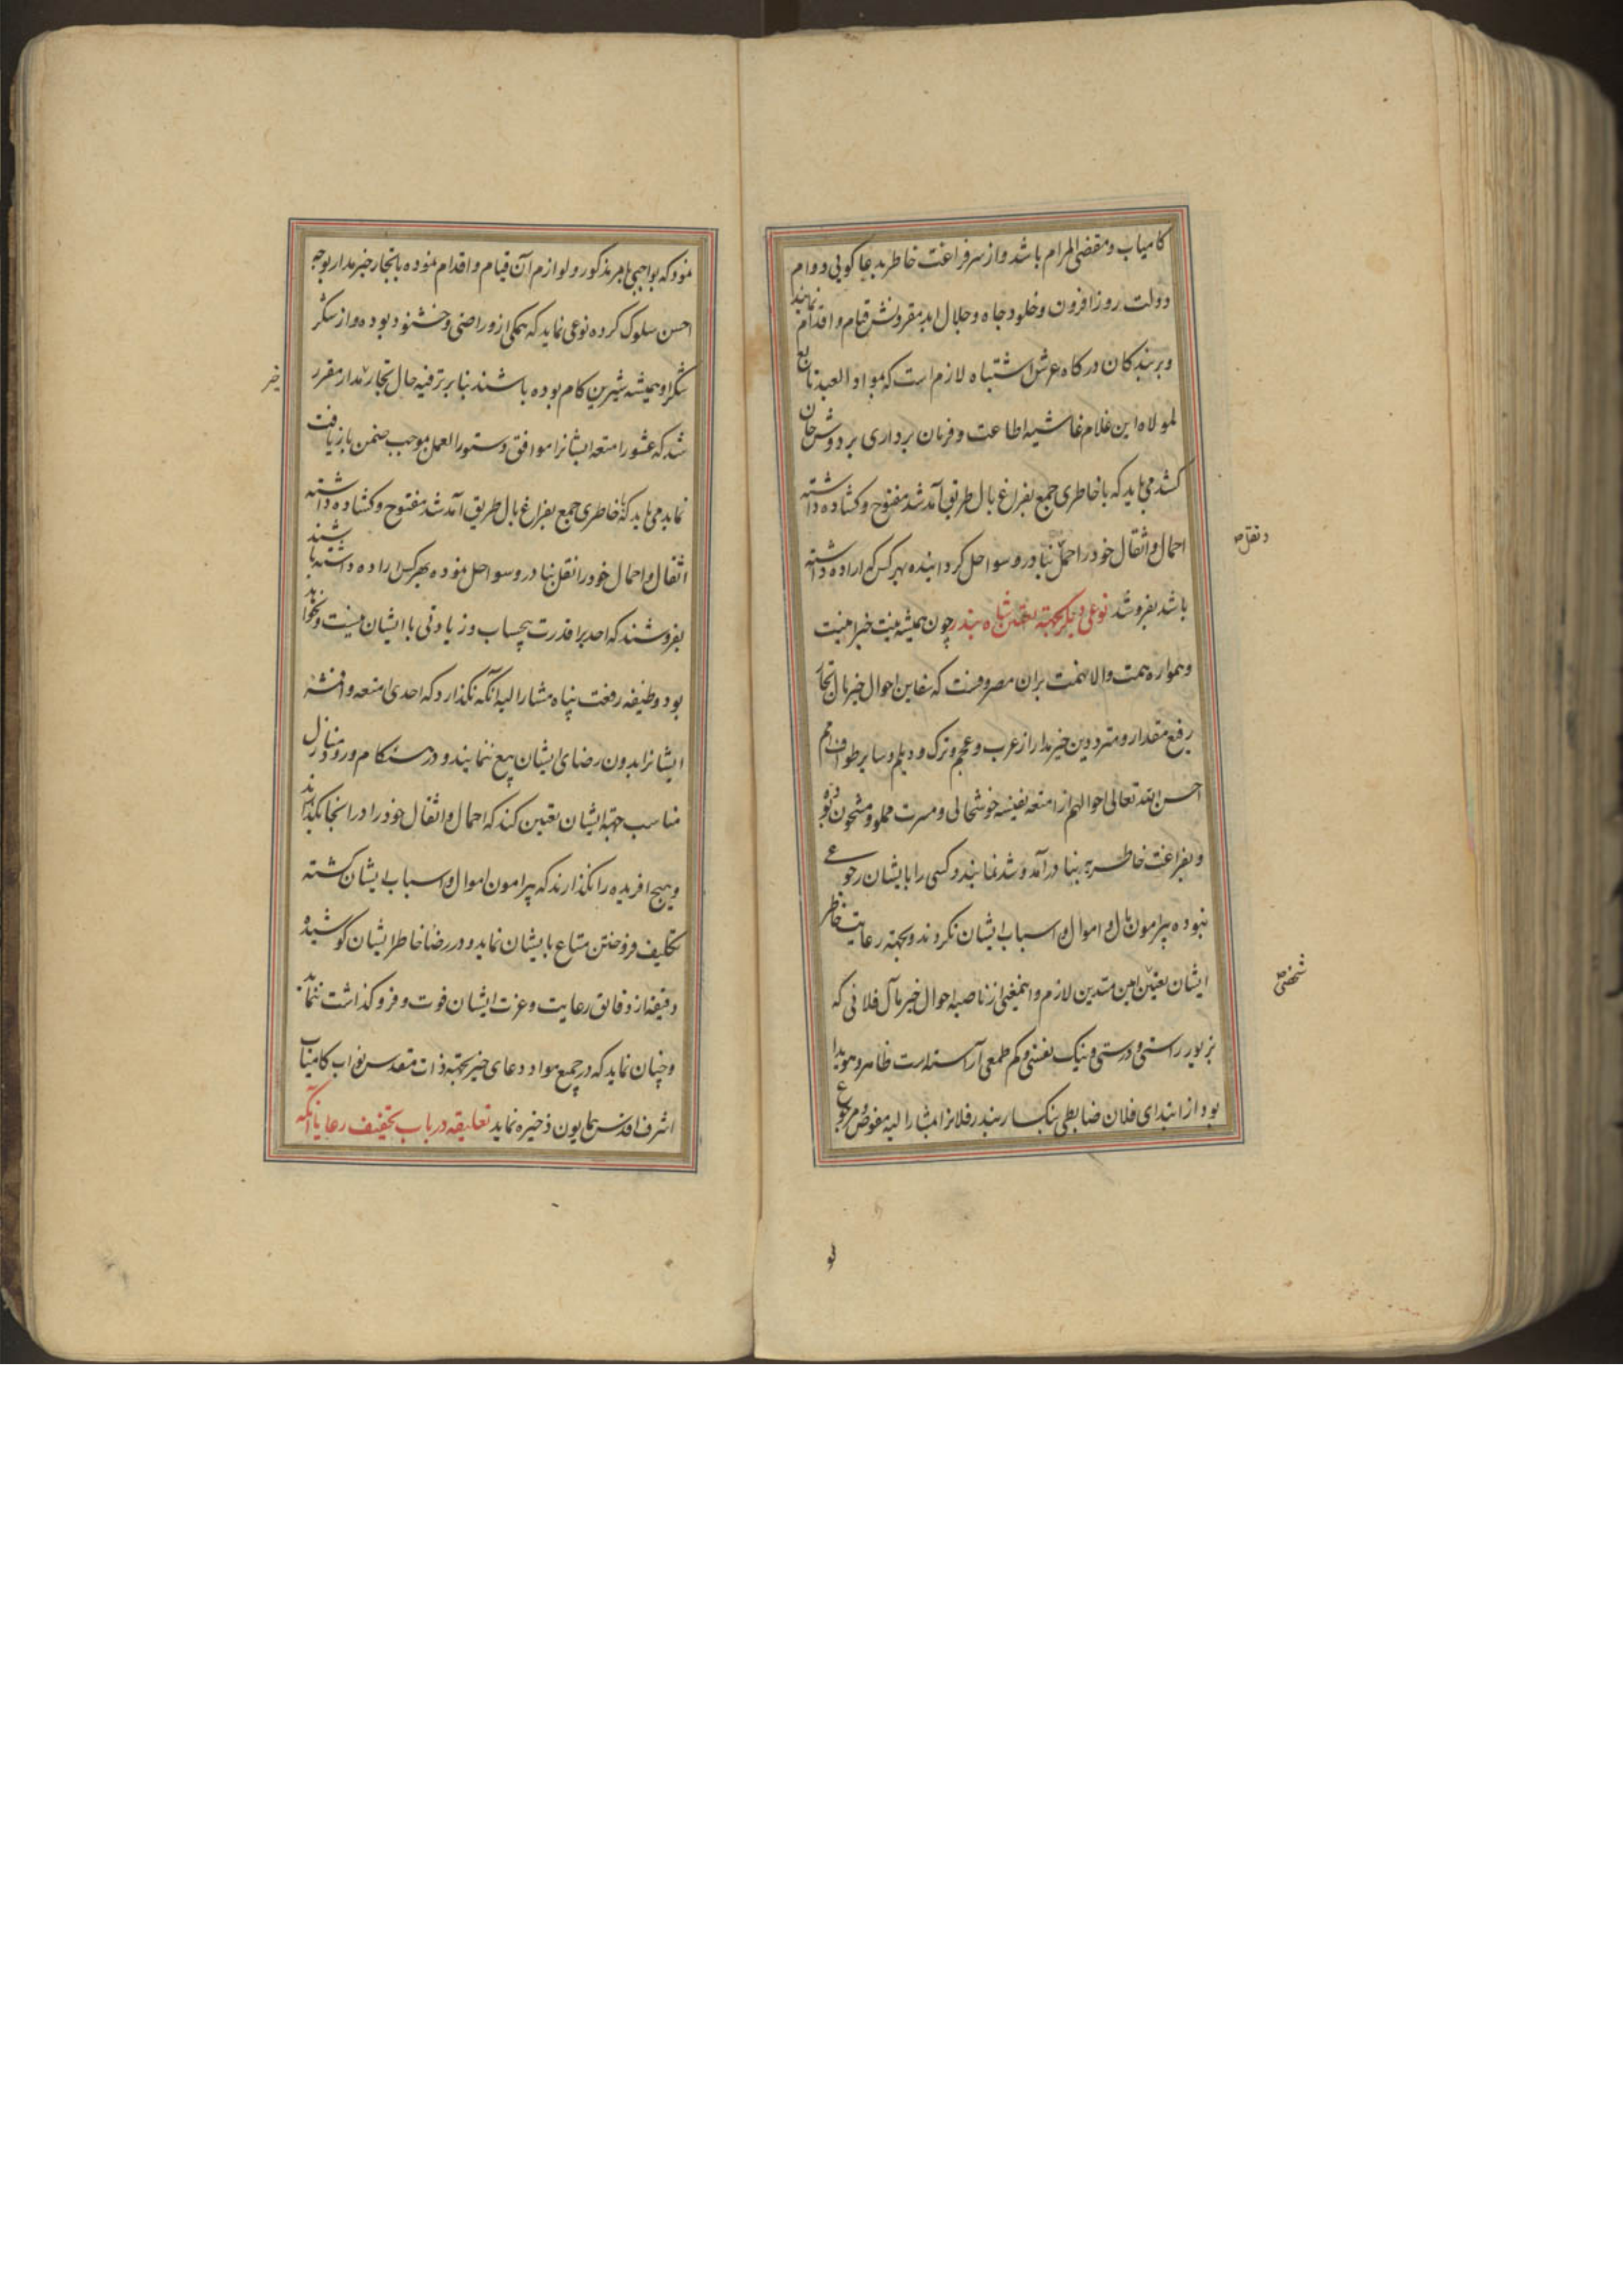 کامیاب و مقضی المرام باشد و از سر فراغت خاطر بدعا کویی دوام
دولت روز افزون و خلود جاه و جلال ابد مقرونش قیام و اقدام نمایند
و بر بندکان درکاه عرش اشتباه لازم است که بمواد العبد تابع
لمولاه این غلام غاشیه اطاعت و فرمان برداری بر دوش جان
کشد می باید که با خاطری جمع بفراغ بال طریق آمد شد مفتوح و کشاده داشته
احمال و اثقال خود را حمل بنادر و سواحل کردانیده بهر کس که اراده داشته
و نقل صح
باشد بفروشد نوعی دیکر بجهته تعیین شاه بندر چون همیشه نیت خیرامنیت
و همواره همت والا نهمت بران مصروفست که معاین احوال خیر مال تجار
رفیع مقدار و مترددین خیر مدار از عرب و عجم و ترک و دیلم و سایر طوایف امم
احسن الله تعالی احوالهم از امتعه نفیسه خوشحالی و مسرت مملو و مشحون بوده
و بفراغت خاطر به بنادر آمد و شد نمایند و کسی را بایشان رجوعی
نبوده پیرامون مال و اموال و اسباب ایشان نکردند و بجهته رعایت خاطر
ایشان تعیین امین متدین لازم و اینمعنی از ناصیه احوال خیر مآل فلانی که
شخصی صح
بزیور راستی و درستی و نیک نفسی و کم طمعی آراسته است ظاهر و هویدا
بود از ابتدای فلان ضابطی بنکسار بندر فلانرا بمشار الیه مفوض و مرجوع
نمود که بواجبی بامر مذکور و لوازم آن قیام و اقدام نموده با تجار خیر مدار بوجه
احسن سلوک کرده نوعی نماید که همکی ازو راضی و خشنود بوده و از شکر
شکر او همیشه شیرین کام بوده باشند بنا بر ترفیه حال تجار مدار مقرر
خیر
شد که عشور امتعه ایشانرا موافق دستور العمل موجب ضمن بازیافت
نماید می باید که با خاطری جمع بفراغ بال طریق آمد شد مفتوح و کشاده داشته
اثقال و احمال خود را نقل بنادر و سواحل نموده بهر کس اراده داشته باشند
بفروشند که احدیرا قدرت بیحساب و زیادتی با ایشان نیست و نخواهد
بود وظیفه رفعت پناه مشار الیه آنکه نکذارد که احدی امتعه و اقمشه
ایشانرا بدون رضای ایشان بیع نمایند و در هنکام ورود منازل
مناسب جهته ایشان تعیین کند که احمال و اثقال خود را در انجا بکذارند
و هیچ افریده را نکذارند که پیرامون اموال و اسباب ایشان کشته
تکلیف فروختن متاع بایشان نماید و در رضا خاطر ایشان کوشیده
دقیقه از دقایق رعایت و عزت ایشان فوت و فروکذاشت ننماید
و چنان نماید که در جمیع مواد دعای خیر بجهته ذات مقدس نواب کامیاب
اشرف اقدس همایون ذخیره نماید تعلیقه در باب تخفیف رعایا آنکه